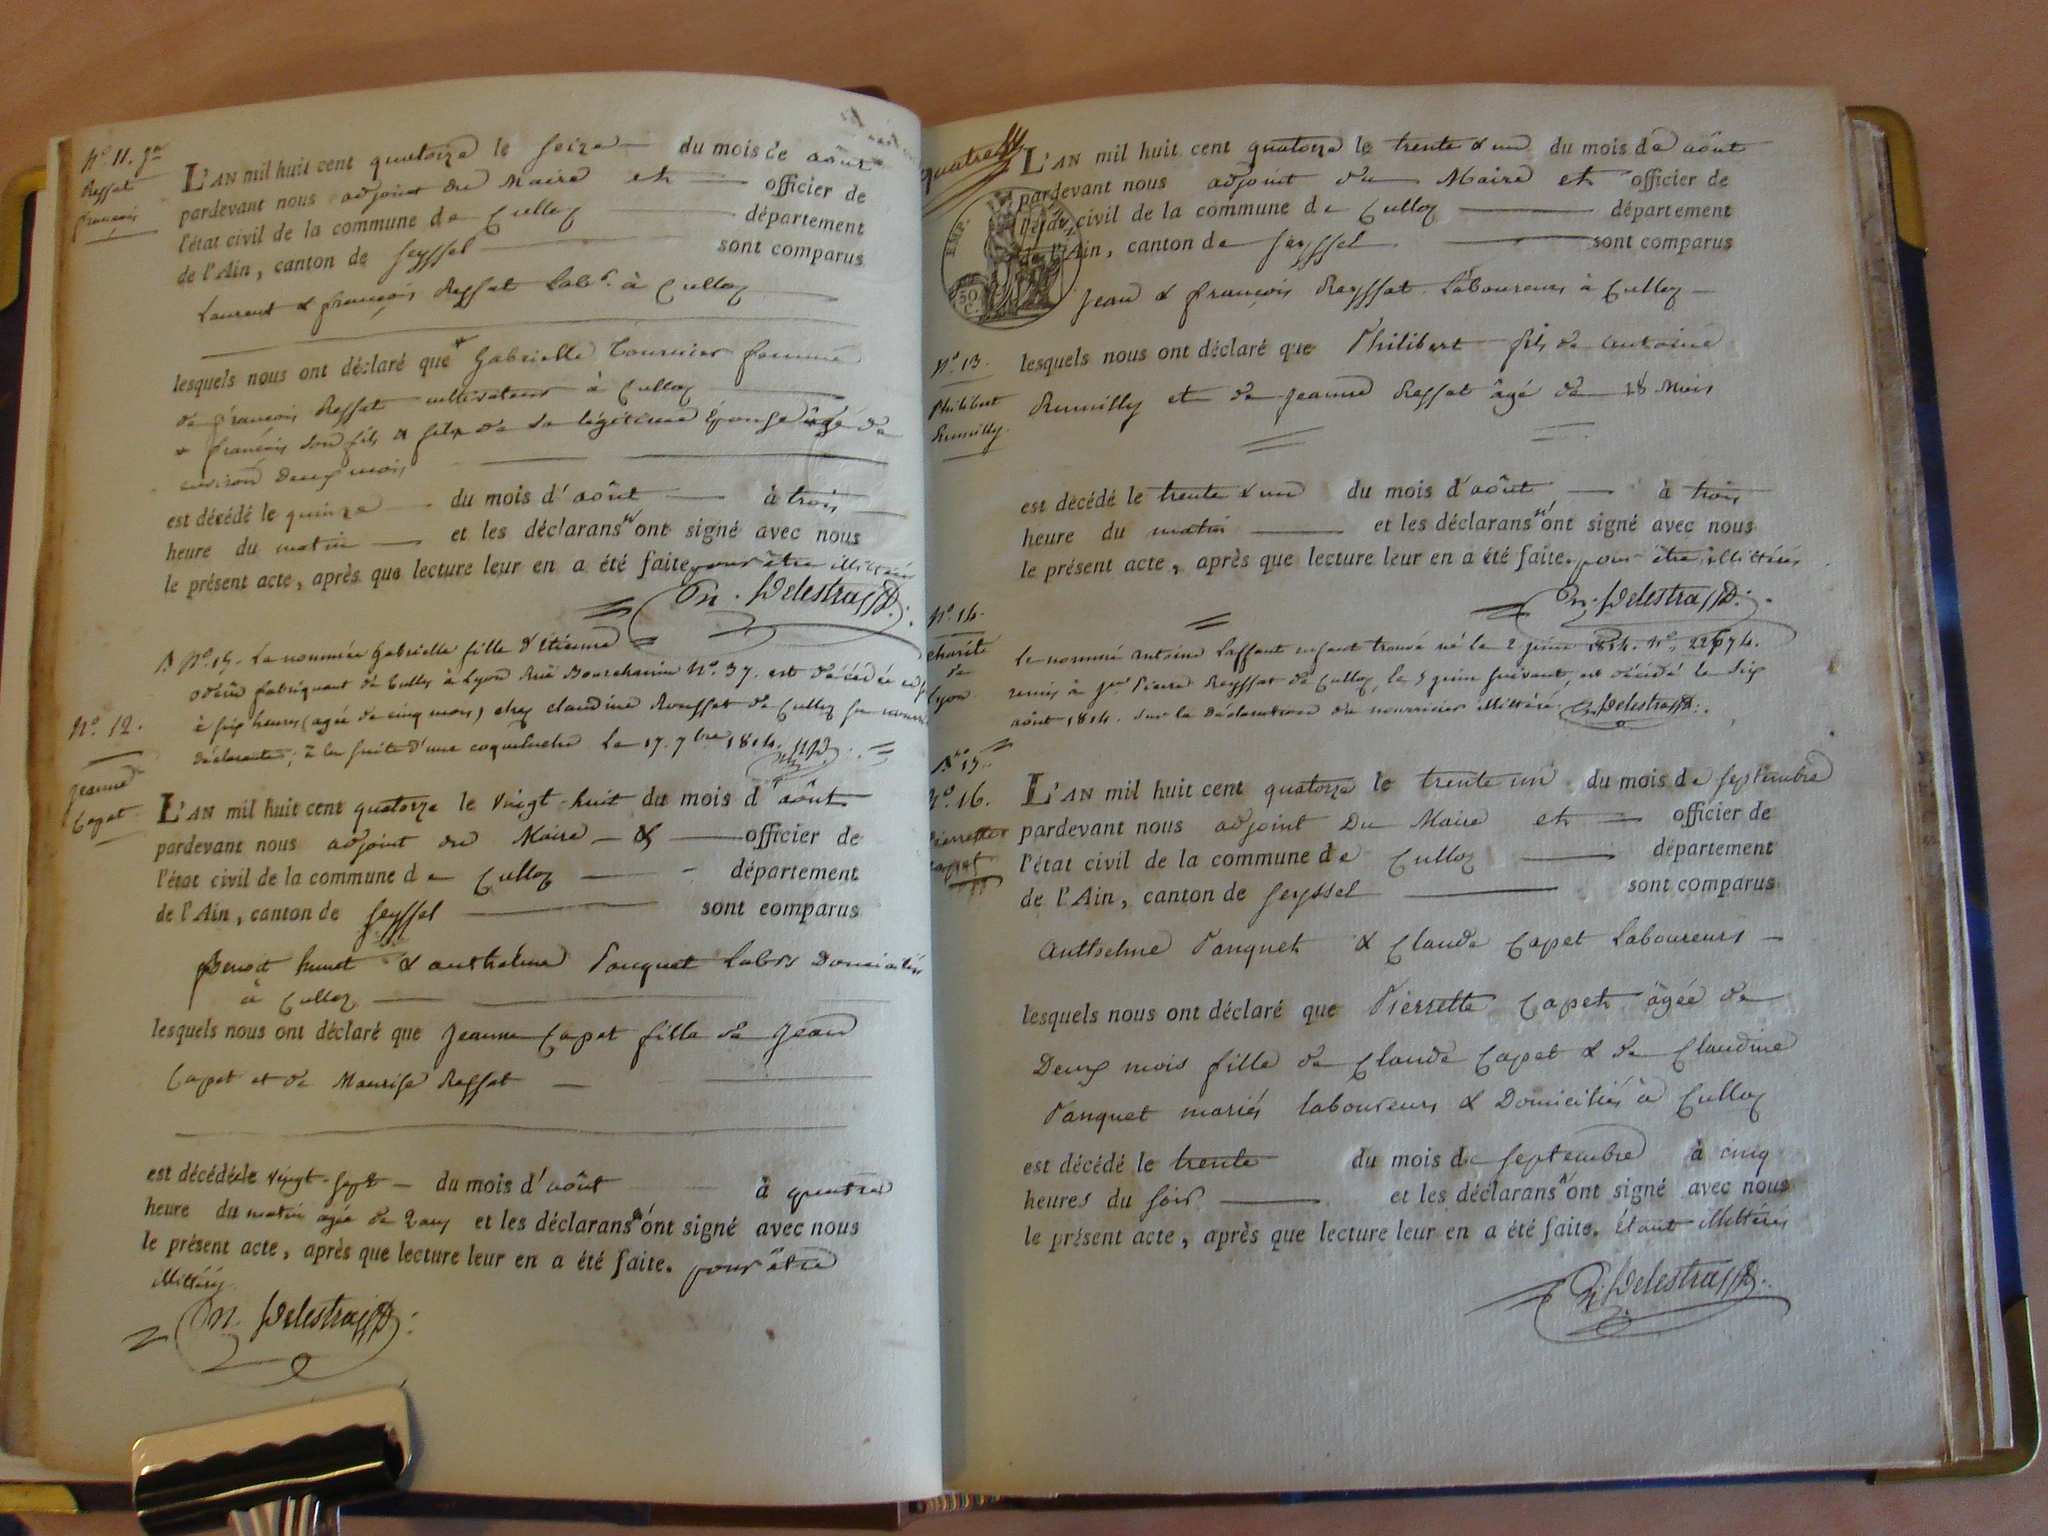 N.º 11. 
Reffat
françois
L'AN mil huit cent quatorze le seize du mois de août
pardevant nous adjoint du Maire et officier de
l'état civil de la commune de Culloz département
de l'Ain, canton de Seyssel sont comparus
Laurent & françois Reffat Lab.rs à Culloz
lesquels nous ont déclaré que Gabrielle Tournier femme
de françois Reffat cultivateur à Culloz
+ françois son fils & de sa légitime Épouse âgé de
environ Deux mois
est décédé le quinze du mois d'août à trois
heure du matin et les déclarans n'ont signé avec nous
le présent acte, après que lecture leur en a été faite pour être illittérés
M. Delestraz
N.º 15. La nommée Gabrielle fille d'Etienne
fabriquant de Tulles à Lyon Ruë Bourchanin N.º 37. est décédée
à six heures (agée de cinq mois) chez claudine Rousset de Culloz sa
déclarante, à la suite d'une coqueluche Le 17. 7bre 1814.
N.º 12.
Jeanne
Capet
L'AN mil huit cent quatorze le vingt-huit du mois d'août
pardevant nous adjoint du Maire & officier de
l'état civil de la commune de Culloz département
de l'Ain, canton de Seyssel sont comparus
Benoit & anthelme Panquet Labrs Domiciliés
à Culloz
lesquels nous ont déclaré que Jeanne Capet fille de Jean
Capet et de Maurise Reffat
est décédée le vingt-sept du mois d'août à quatre
heure du matin agée de 2 ans et les déclarans n'ont signé avec nous
le présent acte, après que lecture leur en a été faite. pour être
illittérés
M. Delestraz
quatre
L'AN mil huit cent quatorze le trente & un du mois de août
pardevant nous adjoint du Maire et officier de
l'état civil de la commune de Culloz département
de l'Ain, canton de Seyssel sont comparus
EMP.
50
C.
Jean & françois Reyffat Laboureurs à Culloz
N.º 13.
Philibert
Rumilly
lesquels nous ont déclaré que Philibert fils de antoine
Rumilly et de Jeanne Reffat âgé de 18 Mois
est décédé le trente & un du mois d'août à trois
heure du matin et les déclarans n'ont signé avec nous
le présent acte, après que lecture leur en a été faite. pour être illittérés
M. Delestraz
N.º 14.
charité
de
Lyon
Le nommé antoine Laffant enfant trouvé né le 2 juin 1814. N.º 22674.
remis à Pierre Reyffat de Culloz, le 5 juin suivant, est décédé le dix
août 1814. sur la déclaration du nourricier illittéré. M. Delestraz
N.º 15.
N.º 16.
Pierrette
Capet
L'AN mil huit cent quatorze le trente un du mois de septembre
pardevant nous adjoint Du Maire et officier de
l'état civil de la commune de Culloz département
de l'Ain, canton de Seyssel sont comparus
Anthelme Panquet & Claude Capet Laboureurs
lesquels nous ont déclaré que Pierrette Capet âgée de
Deux mois fille de Claude Capet & de Claudine
Panquet mariés laboureurs & Domiciliés à Culloz
est décédé le trente du mois de septembre à cinq
heures du soir et les déclarans n'ont signé avec nous
le présent acte, après que lecture leur en a été faite. étant illittérés
M. Delestraz